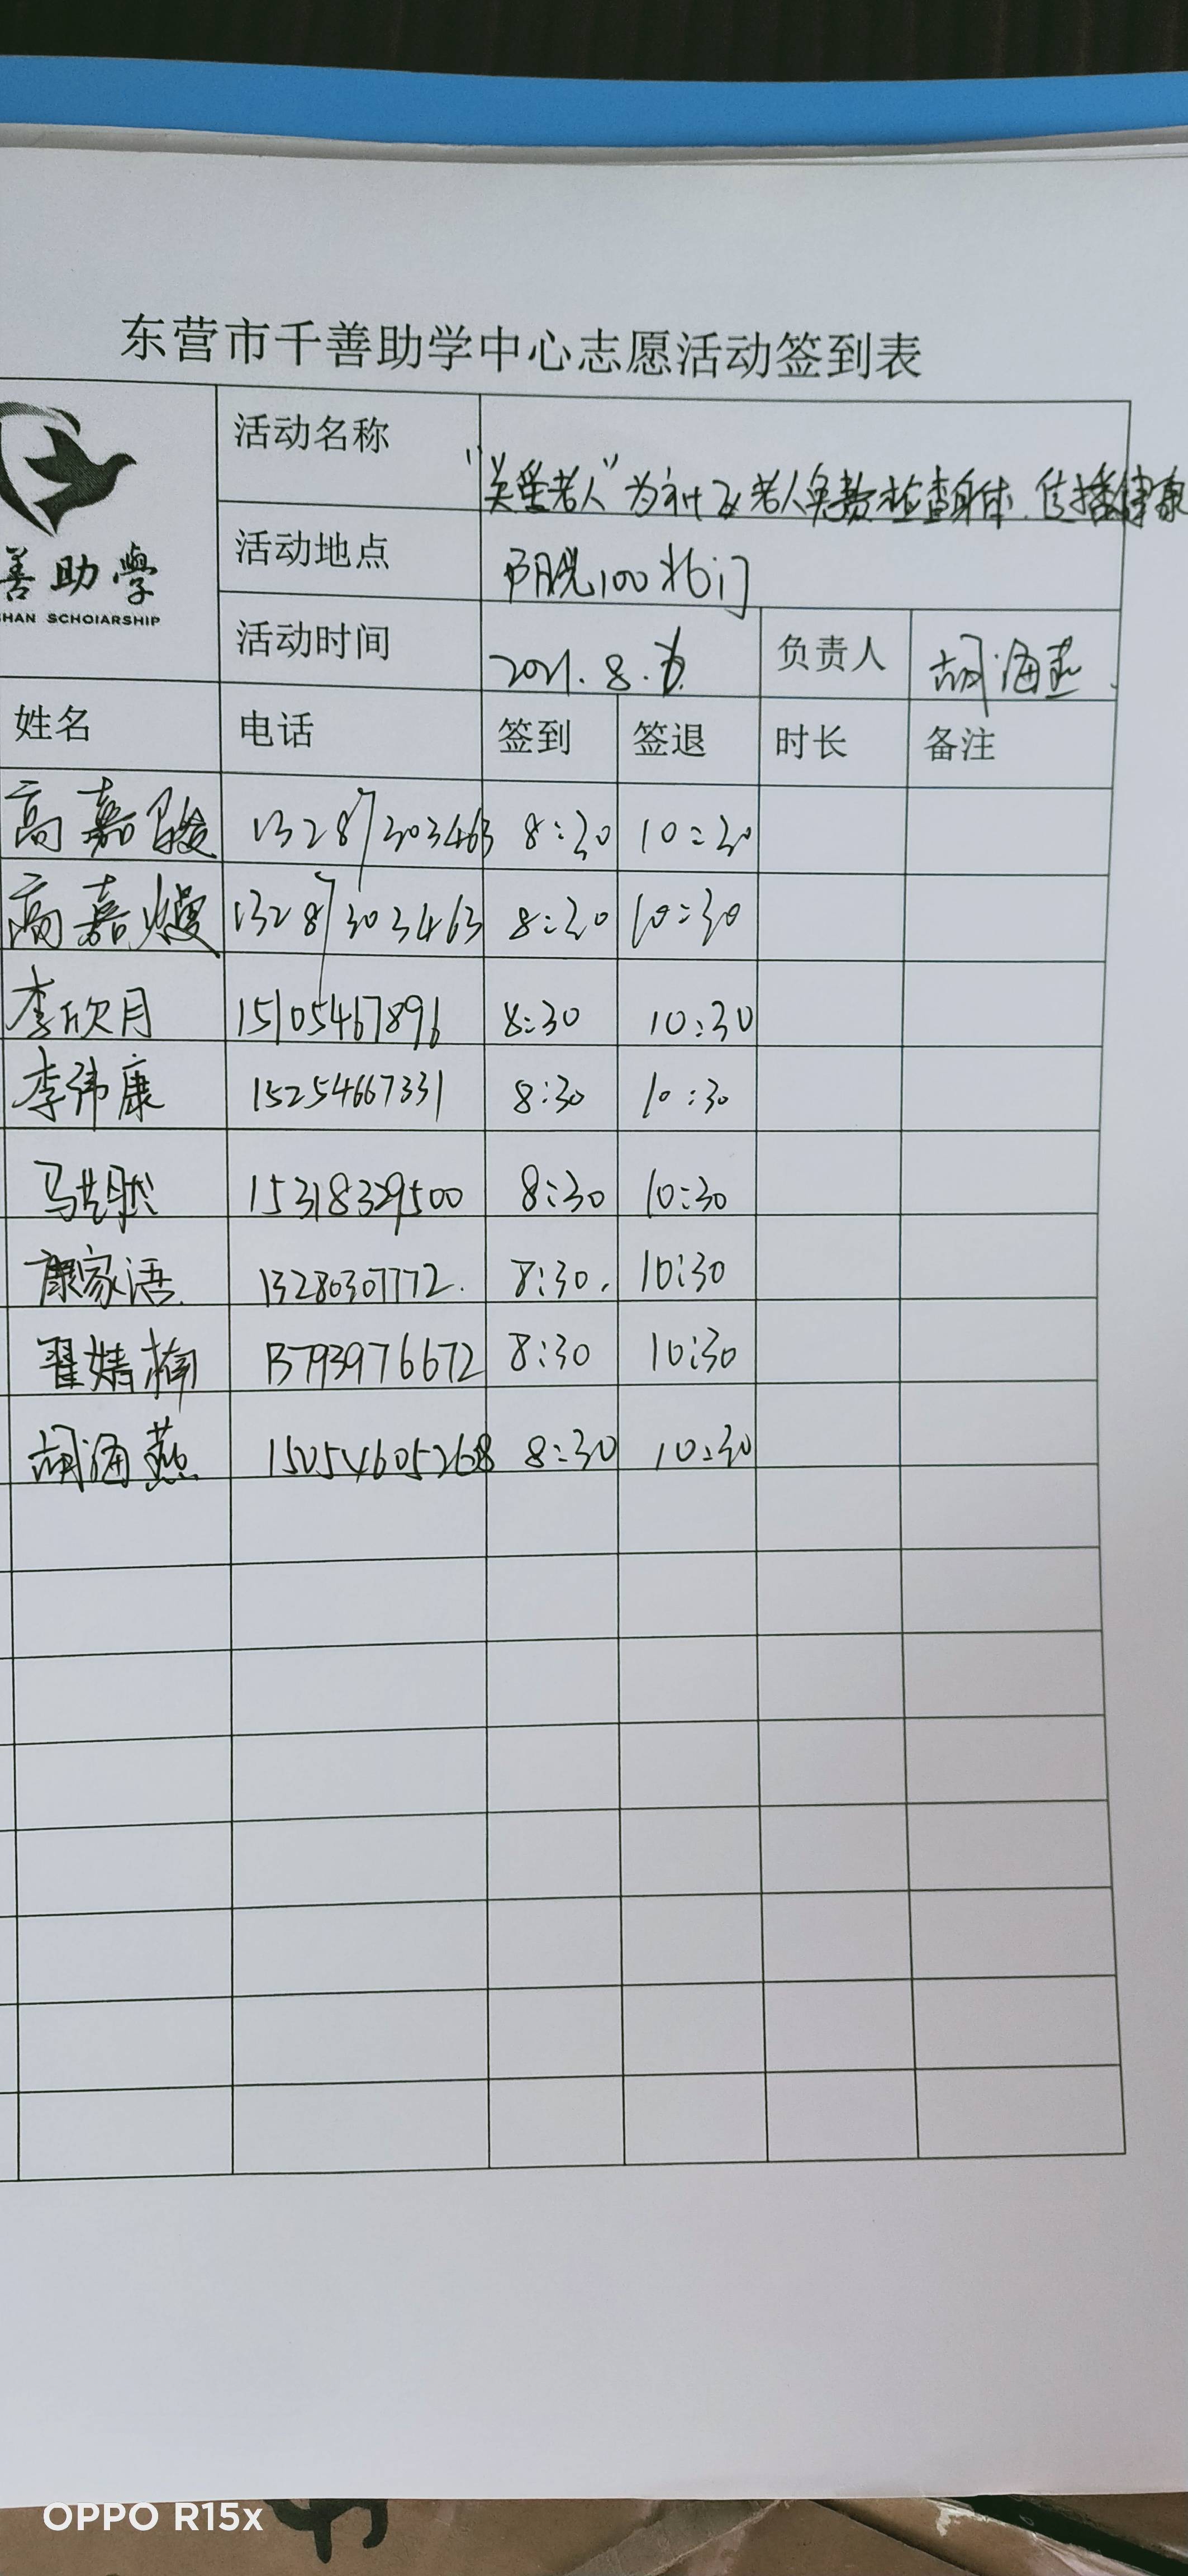 东营市千善助学中心志愿活动签到表
善助學
HAN SCHOIARSHIP
活动名称 "关爱老人"为社区老人免费检查身体.传播健康
活动地点 阳光100北门
活动时间 2021.8. 负责人 胡海燕.
姓名 电话 签到 签退 时长 备注
高嘉骏 13287303463 8:30 10:30
高嘉熳 13287303463 8:30 10:30
李欣月 15105467896 8:30 10:30
李祎康 15254667331 8:30 10:30
马 15318329500 8:30 10:30
康家语. 13280307772. 8:30. 10:30
翟婧楠 13793976672 8:30 10:30
胡海燕. 15054605268 8:30 10:30
OPPO R15x